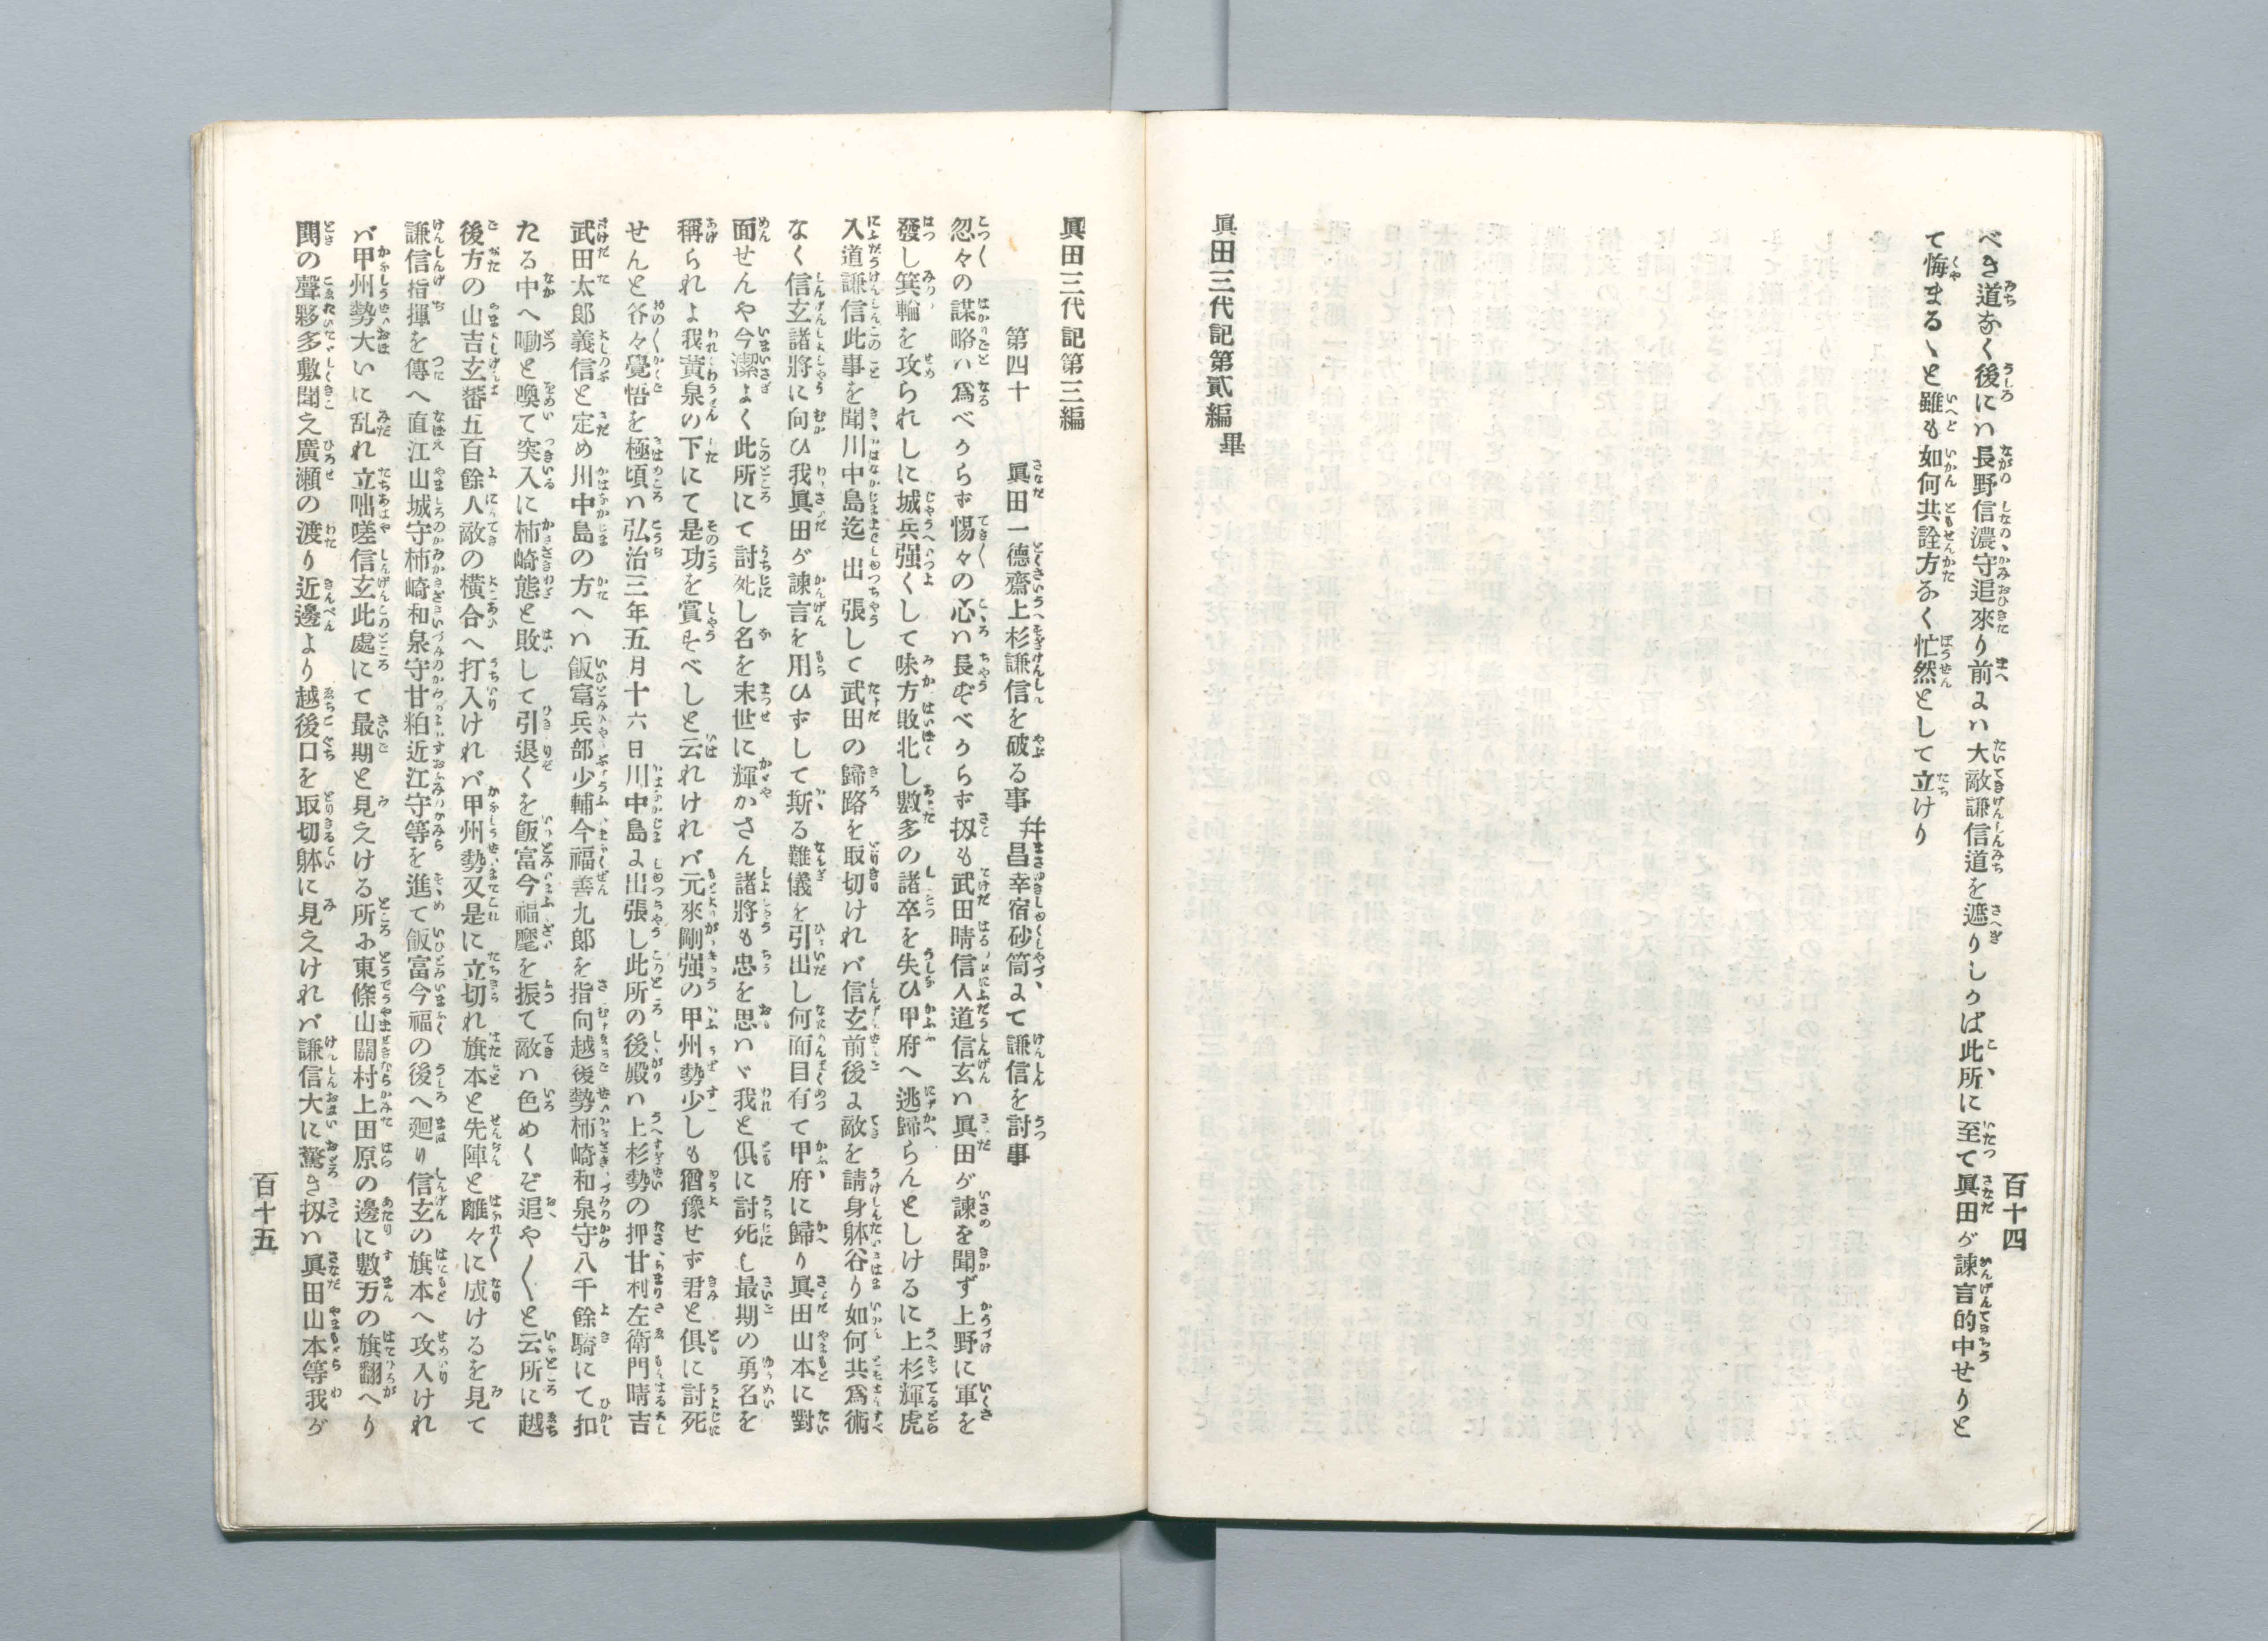 べき道なく後にハ長野信濃守追來り前にハ大敵謙信道を遮りしかば此所に至て眞田が諫言的中せりと
て悔まるゝと雖も如何共詮方なく忙然として立けり
眞田三代記第貳編畢
百十四
眞田三代記第三編
第四十 眞田一德齋上杉謙信を破る事幷昌幸宿砂筒にて謙信を討事
忽々の謀略ハ爲べからず惕々の心ハ長ずべからず扨も武田晴信入道信玄ハ眞田が諫を聞ず上野に軍を
發し箕輪を攻られしに城兵强くして味方敗北し數多の諸卒を失ひ甲府へ逃歸らんとしけるに上杉輝虎
入道謙信此事を聞川中島迄出張して武田の歸路を取切けれバ信玄前後に敵を請身躰谷り如何共爲術
なく信玄諸將に向ひ我眞田が諫言を用ひずして斯る難儀を引出し何面目有て甲府に歸り眞田山本に對
面せんや今潔よく此所にて討死し名を末世に輝かさん諸將も忠を思ハヾ我と俱に討死し最期の勇名を
稱られよ我黄泉の下にて是功を賞すべしと云れけれバ元來剛强の甲州勢少しも猶豫せず君と俱に討死
せんと各々覺悟を極頃ハ弘治三年五月十六日川中島に出張し此所の後殿ハ上杉勢の押甘利左衛門晴吉
武田太郎義信と定め川中島の方へハ飯富兵部少輔今福善九郎を指向越後勢柿崎和泉守八千餘騎にて扣
たる中へ噇と喚て突入に柿崎態と敗して引退くを飯富今福麾を振て敵ハ色めくぞ追や〱と云所に越
後方の山吉玄蕃五百餘人敵の橫合へ打入けれバ甲州勢又是に立切れ旗本と先陣と離々に成けるを見て
謙信指揮を傳へ直江山城守柿崎和泉守甘粕近江守等を進て飯富今福の後へ廻り信玄の旗本へ攻入けれ
バ甲州勢大いに乱れ立咄嗟信玄此處にて最期と見えける所お東條山關村上田原の邊に數万の旗翻へり
鬨の聲夥多敷聞え廣瀬の渡り近邊より越後口を取切躰に見えけれバ謙信大に驚き扨ハ眞田山本等我が
百十五